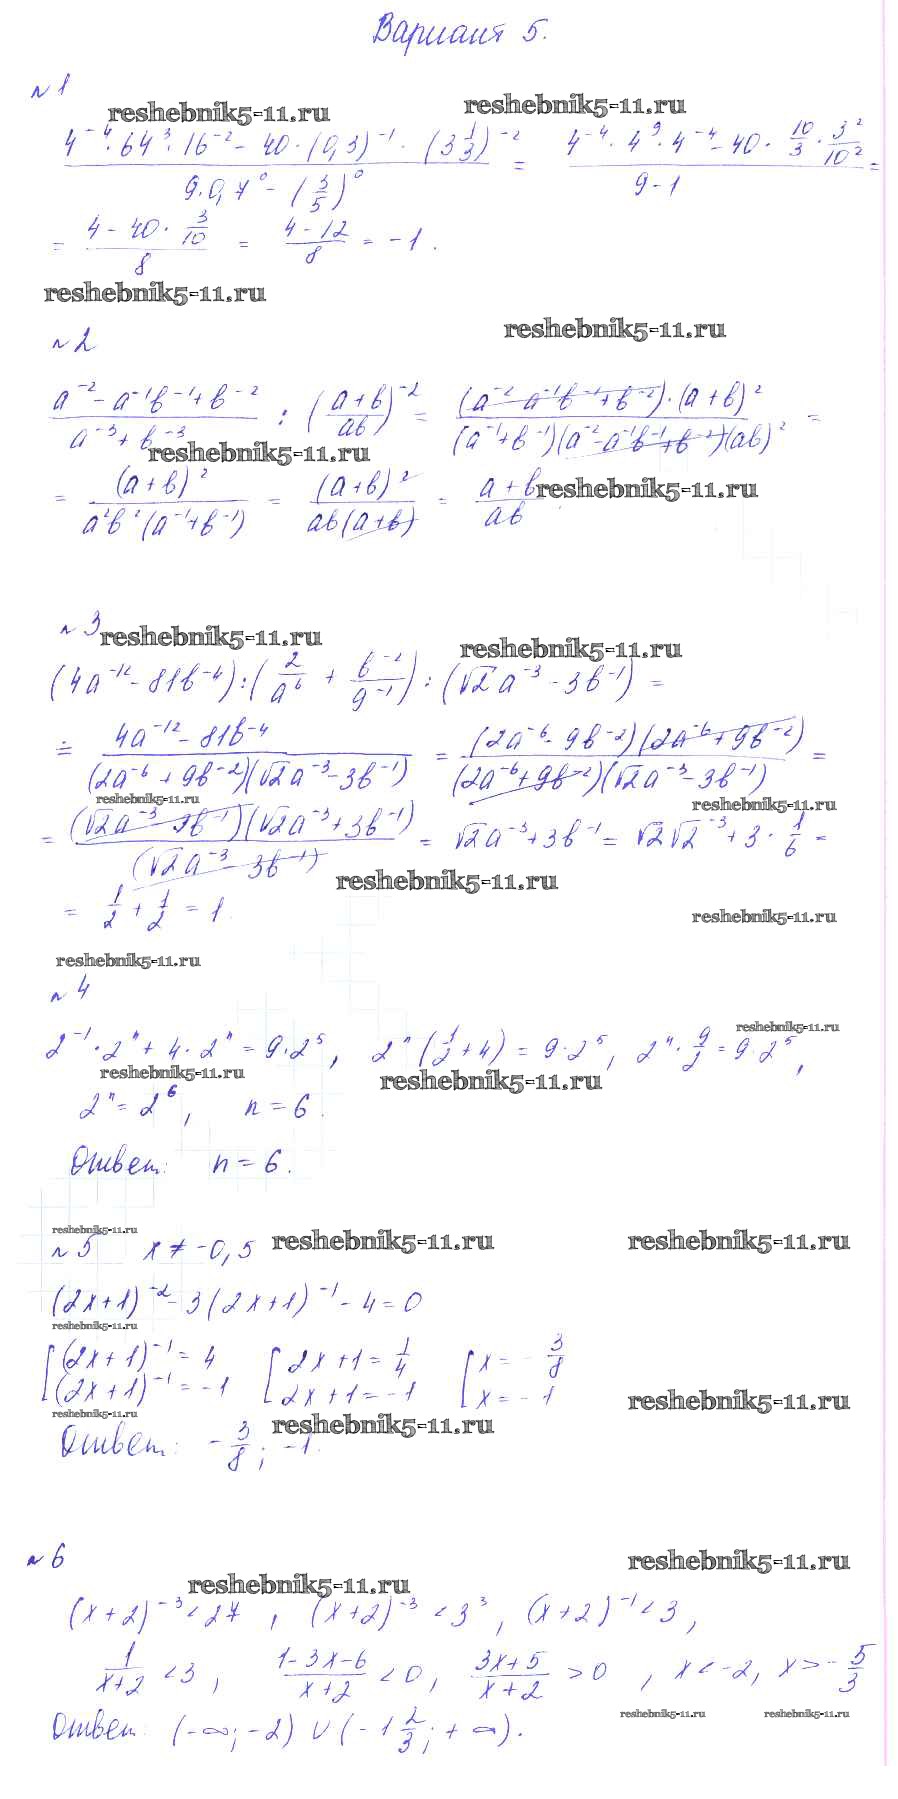 Вариант 5.
№1
reshebnik5-11.ru reshebnik5-11.ru
(4⁻⁴·64³·16⁻² - 40·(0,3)⁻¹·(3 1/3)⁻²)/(9·0,7⁰ - (3/5)⁰) = (4⁻⁴·4⁹·4⁻⁴ - 40·10/3·3²/10²)/(9-1) =
= (4 - 40·3/10)/8 = (4-12)/8 = -1.
reshebnik5-11.ru
reshebnik5-11.ru
№2
(a⁻² - a⁻¹b⁻¹ + b⁻²)/(a⁻³ + b⁻³) : ((a+b)/ab)⁻² = ((a⁻² - a⁻¹b⁻¹ + b⁻²)·(a+b)²)/((a⁻¹+b⁻¹)(a⁻² - a⁻¹b⁻¹ + b⁻²)(ab)²) =
reshebnik5-11.ru
= (a+b)²/(a²b²(a⁻¹+b⁻¹)) = (a+b)²/(ab(a+b)) = (a+b)/ab
reshebnik5-11.ru
№3
reshebnik5-11.ru reshebnik5-11.ru
(4a⁻¹² - 81b⁻⁴):(2/a⁶ + b⁻²/9⁻¹):(√2a⁻³ - 3b⁻¹) =
= (4a⁻¹² - 81b⁻⁴)/((2a⁻⁶ + 9b⁻²)(√2a⁻³ - 3b⁻¹)) = ((2a⁻⁶ - 9b⁻²)(2a⁻⁶ + 9b⁻²))/((2a⁻⁶ + 9b⁻²)(√2a⁻³ - 3b⁻¹)) =
reshebnik5-11.ru reshebnik5-11.ru
= ((√2a⁻³ - 3b⁻¹)(√2a⁻³ + 3b⁻¹))/(√2a⁻³ - 3b⁻¹) = √2a⁻³ + 3b⁻¹ = √2√2⁻³ + 3·1/6 =
reshebnik5-11.ru
= 1/2 + 1/2 = 1.
reshebnik5-11.ru
reshebnik5-11.ru
№4
reshebnik5-11.ru
2⁻¹·2ⁿ + 4·2ⁿ = 9·2⁵, 2ⁿ(1/2 + 4) = 9·2⁵, 2ⁿ·9/2 = 9·2⁵,
reshebnik5-11.ru reshebnik5-11.ru
2ⁿ = 2⁶, n = 6.
Ответ: n = 6.
reshebnik5-11.ru
№5 x ≠ -0,5 reshebnik5-11.ru reshebnik5-11.ru
(2x+1)⁻² - 3(2x+1)⁻¹ - 4 = 0
reshebnik5-11.ru
[(2x+1)⁻¹ = 4 [2x+1 = 1/4 [x = -3/8
[(2x+1)⁻¹ = -1 [2x+1 = -1 [x = -1
reshebnik5-11.ru reshebnik5-11.ru reshebnik5-11.ru
Ответ: -3/8; -1.
№6
reshebnik5-11.ru reshebnik5-11.ru
(x+2)⁻³ < 27, (x+2)⁻³ < 3³, (x+2)⁻¹ < 3,
1/(x+2) < 3, (1-3x-6)/(x+2) < 0, (3x+5)/(x+2) > 0, x < -2, x > -5/3
reshebnik5-11.ru reshebnik5-11.ru
Ответ: (-∞; -2) ∪ (-1 2/3; +∞).